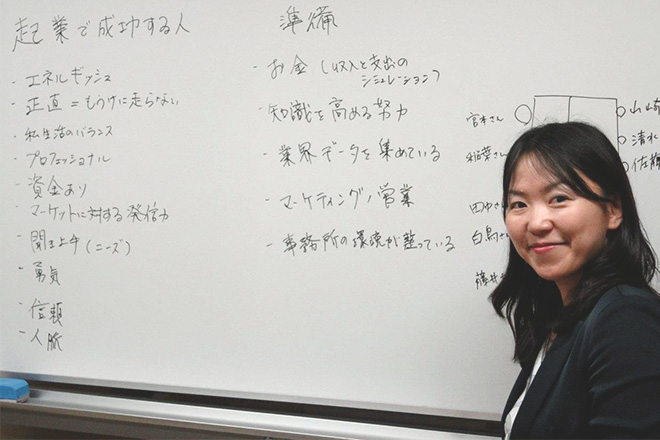 起業で成功する人
・エネルギッシュ
・正直＝もうけに走らない
・私生活のバランス
・プロフェッショナル
・資金あり
・マーケットに対する発信力
・聞き上手（ニーズ）
・勇気
・信頼
・人脈
準備
・お金（収入と支出の
シミュレーション）
・知識を高める努力
・業界データを集めている
・マーケティング／営業
・事務所の環境が整っている
宮本さん
稲葉さん
田中さん
白鳥さん
藤井
山崎
清水
佐